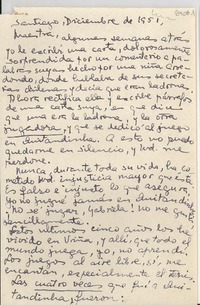 Santiago, Diciembre de 1951,
Maestra, algunas semanas atrás
yo le escribí una carta, dolorosamente
sorprendida por un comentario a pa-
labras suyas hecho por una niña
donde hablaba de sus secreta-
rias chilenas y decía que eran ladronas.
Ahora rectifica ella y escribe párrafos
de una carta suya, en que dice
que una era la ladrona, y la otra
jugadora, y que se dedicó al juego
en Quitandinha. A esto no puedo
quedarme en silencio, y Ud. me
perdone.
Nunca, durante toda su vida, ha co-
metido Ud. injusticia mayor que ésta.
Es falso e injusto lo que asegura.
Yo no jugué jamás en Quitandinha.
¡No sé jugar, Gabriela! No me gusta
sencillamente.
Estos últimos cinco años los he
vivido en Viña, y allí, que todo el
mundo juega, yo no aprendí.
Los juegos al aire libre, sí, me
encantan, especialmente el tenis.
Las cuatro veces que fui a Qui-
tandinha, fueron: